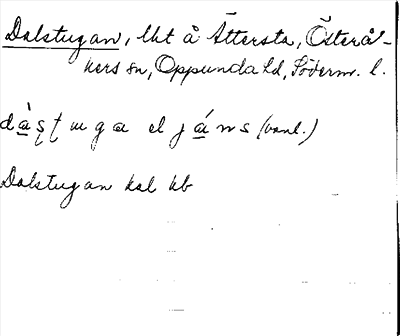 Dalstugan, lht å Ättersta, Österå-
kers sn, Oppunda hd, Söderm. l.
dàsʈuga el jáns (vanl.)
Dalstugan kal kb